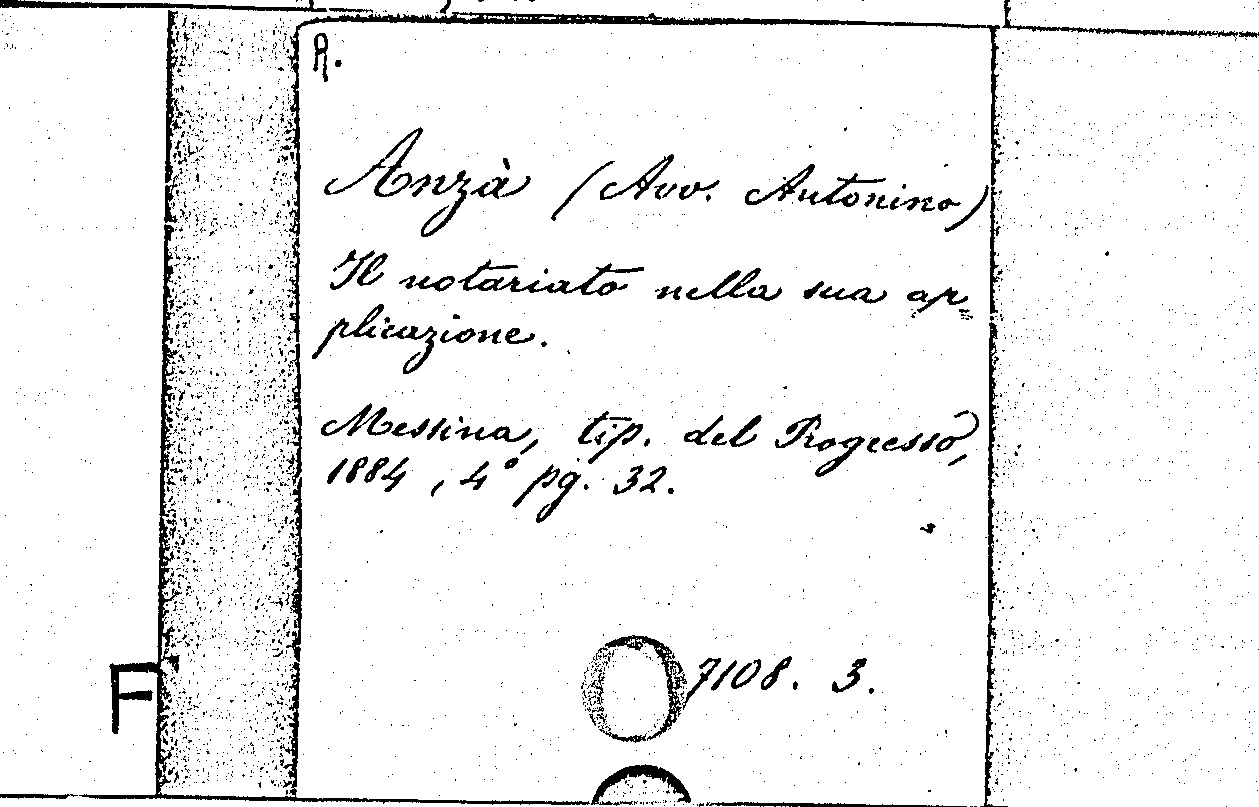 R.
Anzà (Avv. Antonino)
Il notariato nella sua ap-
plicazione.
Messina, tip. del Progresso,
1884, 4° pg. 32.
F
7108. 3.